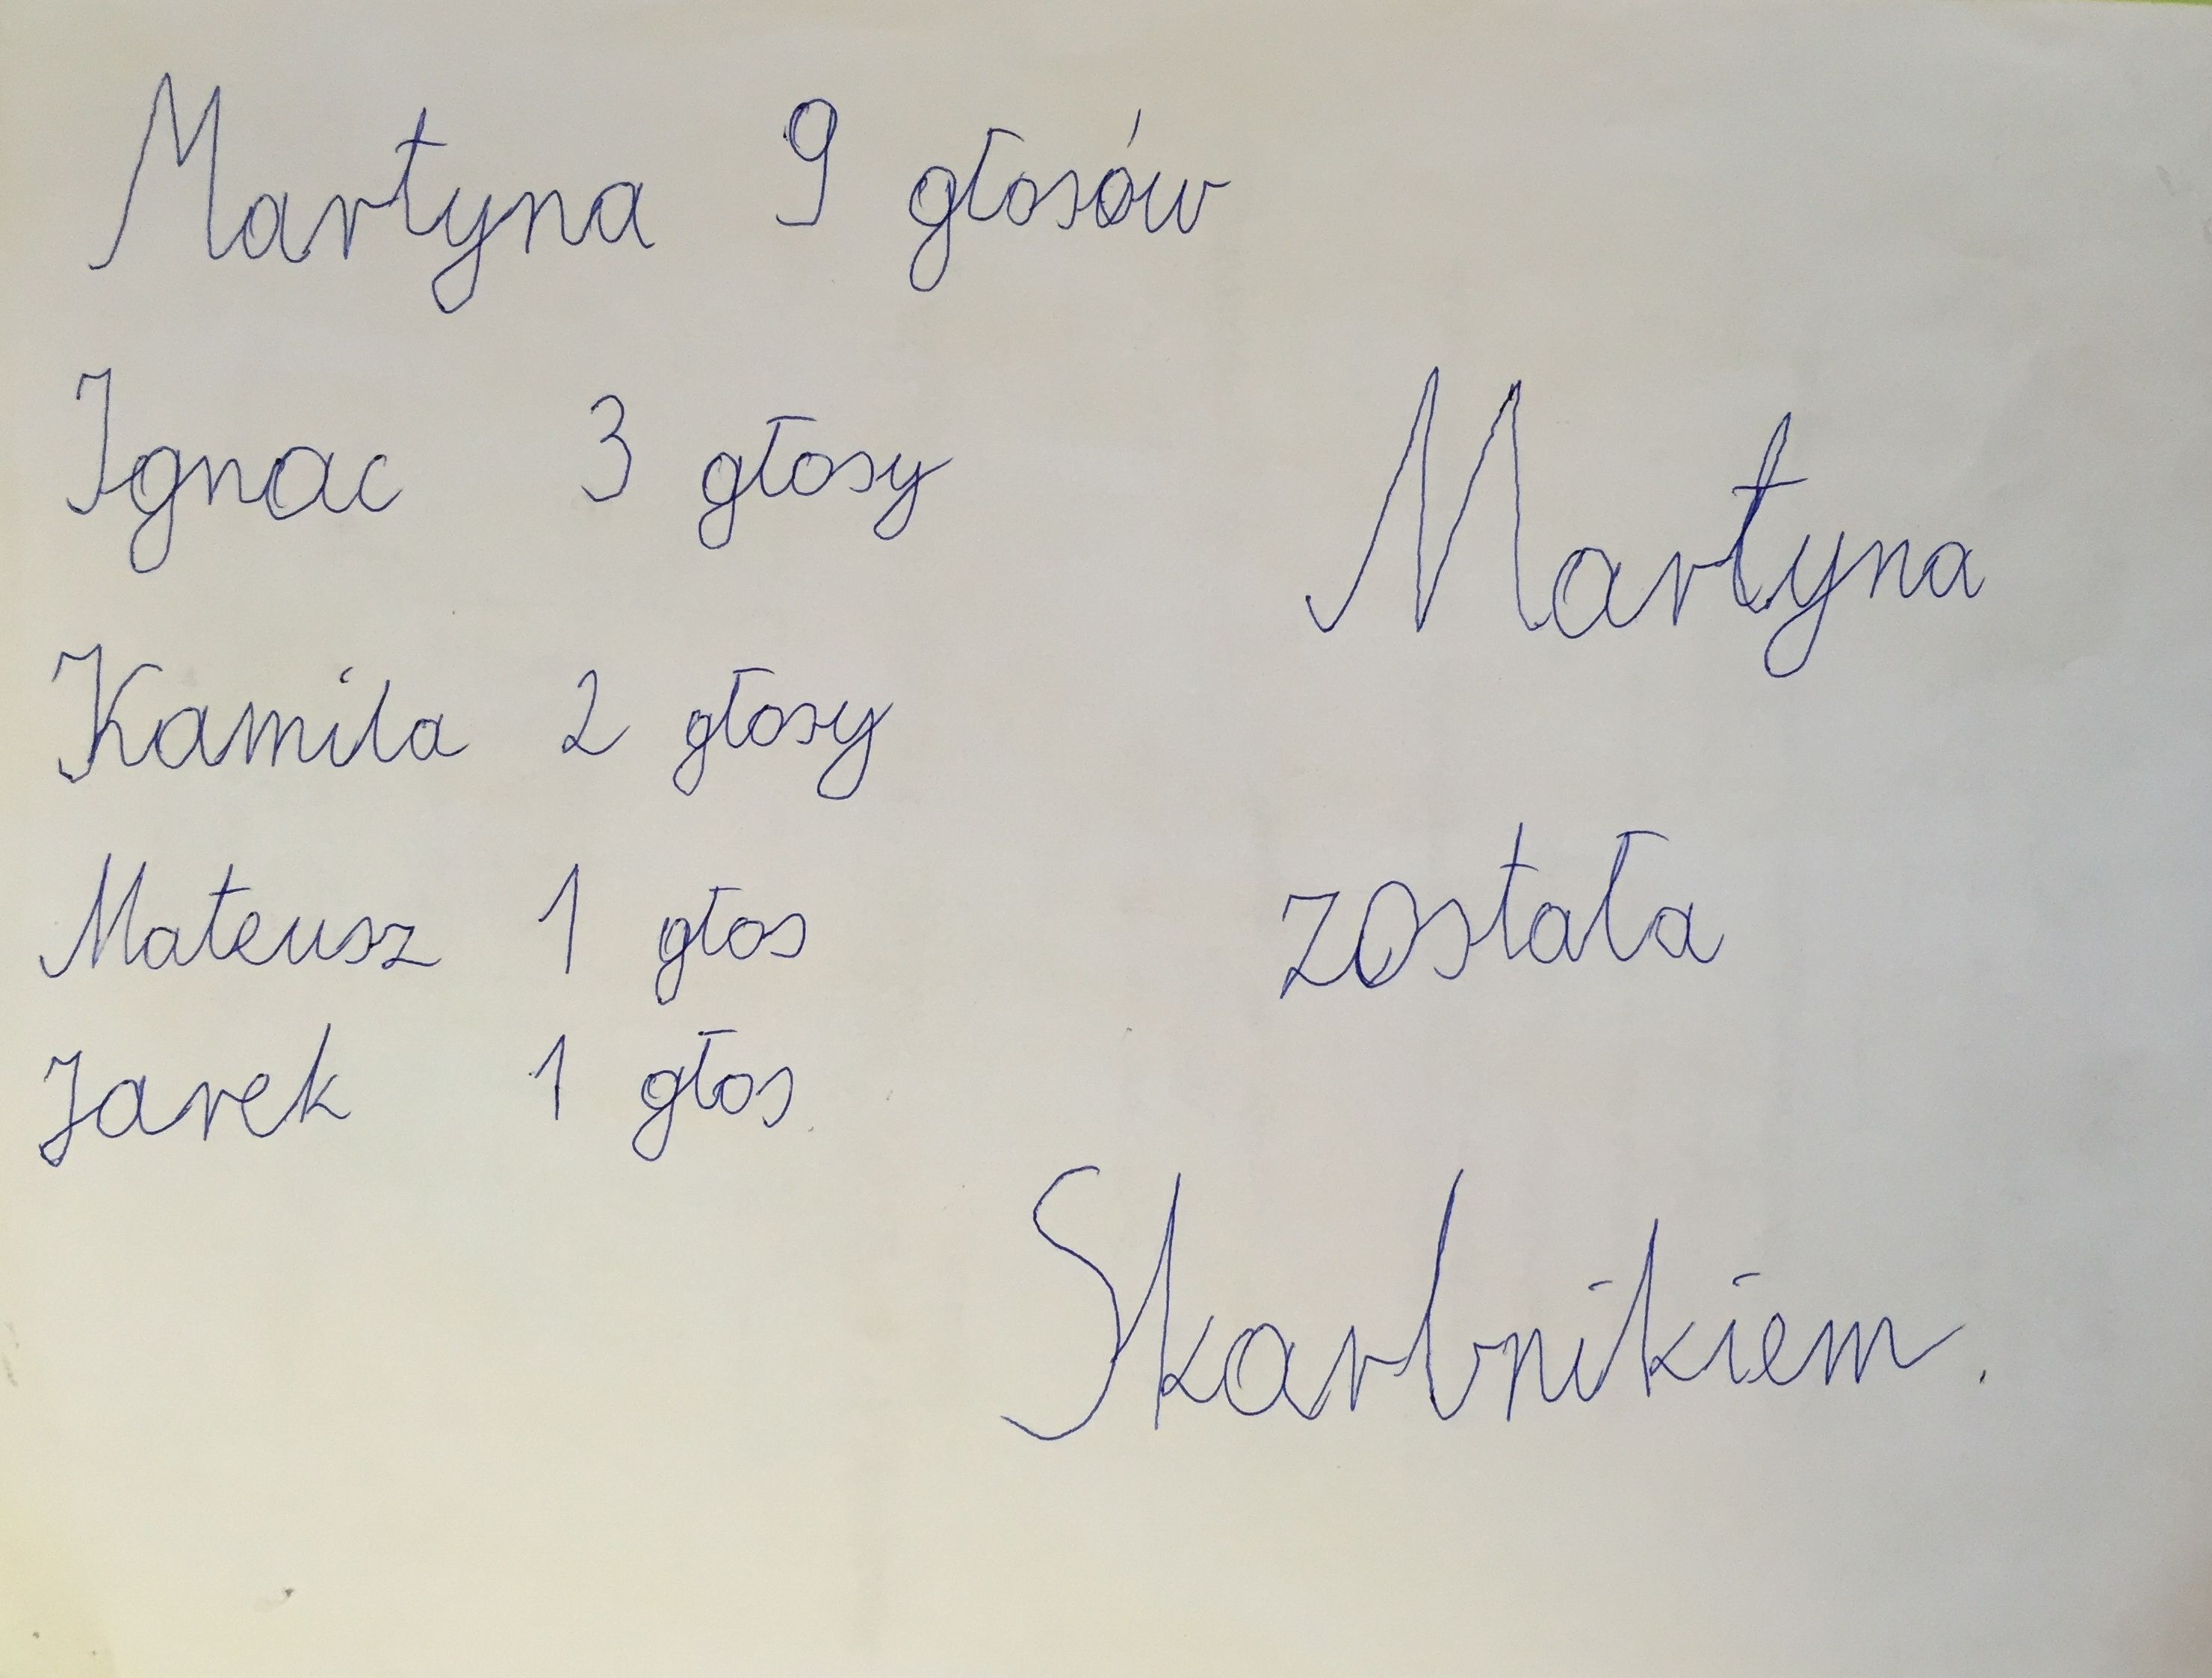 Martyna 9 głosów
Ignac 3 głosy
Kamila 2 głosy
Mateusz 1 głos
Jarek 1 głos
Martyna
została
Skarbnikiem.